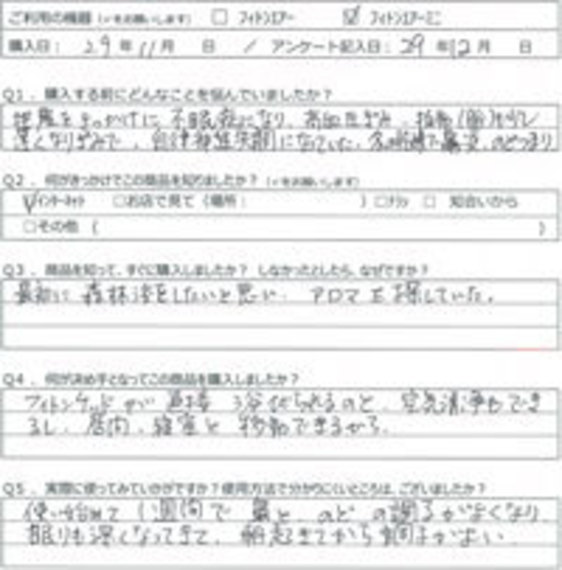 ご利用の機器（✓をお願いします） □ フィトンエアー ☑ フィトンエアーミニ
購入日： 29 年 11 月 日 ／ アンケート記入日： 29 年 12 月 日
Q1．購入する前にどんなことを悩んでいましたか？
をきっかけに 不眠症になり、高血圧ぎみ、
自律神経失調になっていた。のどつまり
Q2．何がきっかけでこの商品を知りましたか？（✓をお願いします）
☑インターネット □お店で見て（場所： ）□チラシ □ 知合いから
□その他（ ）
Q3．商品を知って、すぐに購入しましたか？ しなかったとしたら、なぜですか？
最初に 森林浴をしたいと思い、アロマを探していた。
Q4．何が決め手となってこの商品を購入しましたか？
フィトンチッドが 直接 浴せられるのと、空気清浄もでき
るし、居間、寝室と 移動できるから。
Q5．実際に使ってみていかがですか？使用方法で分かりにくいところは、ございましたか？
使い始めて 1週間で 鼻と のどの調子がよくなり、
眠りも深くなってきて、朝起きてから調子がよい。